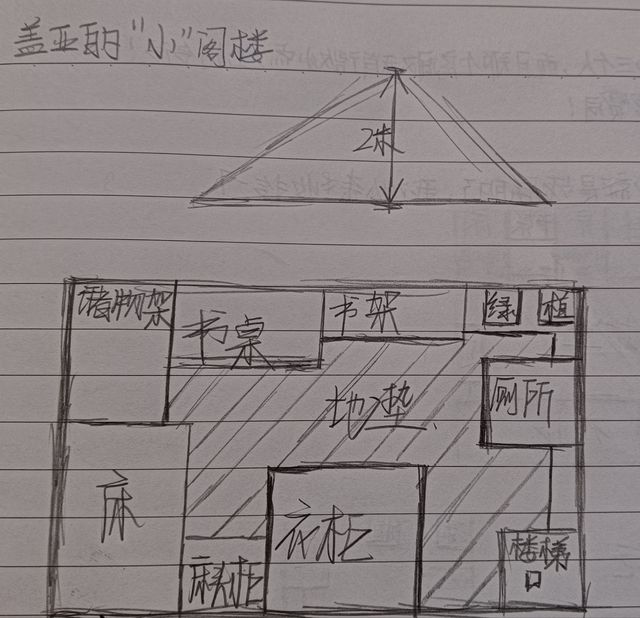 盖亚的“小”阁楼
2米
储物架
书桌
书架
绿
植
厕所
地垫
床
床头柜
衣柜
楼梯
口